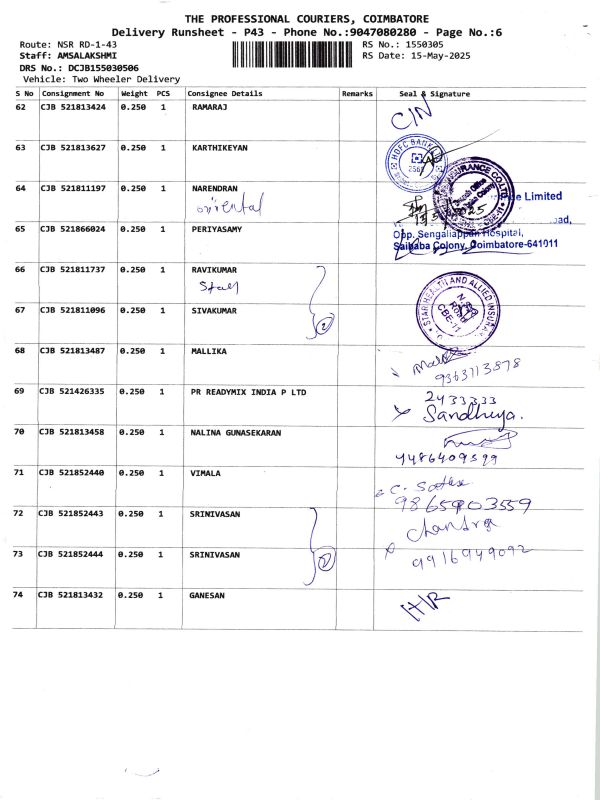 THE PROFESSIONAL COURIERS, COIMBATORE
Delivery Runsheet - P43 - Phone No.:9047080280 - Page No.:6
Route: NSR RD-1-43 RS No.: 1550305
Staff: AMSALAKSHMI RS Date: 15-May-2025
DRS No.: DCJB155030506
Vehicle: Two Wheeler Delivery
S No Consignment No Weight PCS Consignee Details Remarks Seal & Signature
62 CJB 521813424 0.250 1 RAMARAJ C/N
63 CJB 521813627 0.250 1 KARTHIKEYAN
HDFC BANK
64 CJB 521811197 0.250 1 NARENDRAN
oriental
Limited
65 CJB 521866024 0.250 1 PERIYASAMY
Opp. Sengaliappan Hospital,
Saibaba Colony, Coimbatore-641011
66 CJB 521811737 0.250 1 RAVIKUMAR
Star
STAR HEALTH AND ALLIED INSURAN
N.S.R
ROAD
CBE-11
67 CJB 521811096 0.250 1 SIVAKUMAR 2
68 CJB 521813487 0.250 1 MALLIKA
9363113878
69 CJB 521426335 0.250 1 PR READYMIX INDIA P LTD 2433333
Sandhiya.
70 CJB 521813458 0.250 1 NALINA GUNASEKARAN
71 CJB 521852440 0.250 1 VIMALA
9865903559
72 CJB 521852443 0.250 1 SRINIVASAN
73 CJB 521852444 0.250 1 SRINIVASAN 2 9916949092
74 CJB 521813432 0.250 1 GANESAN